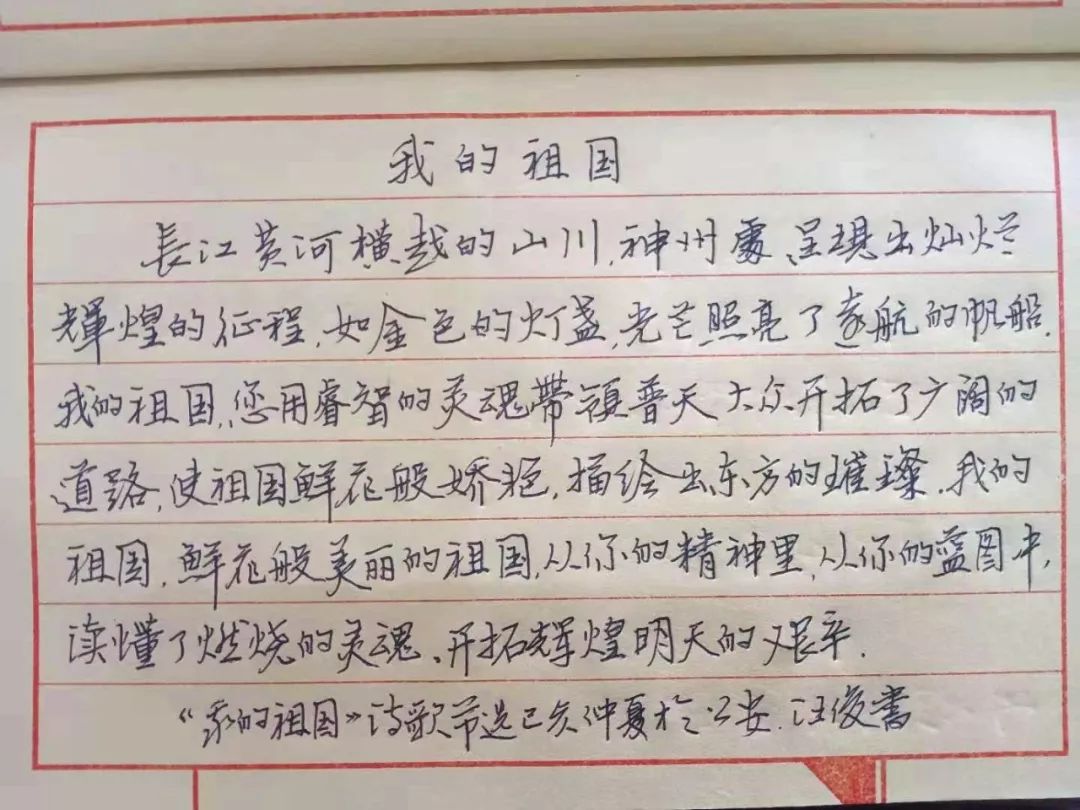 我的祖国
長江黄河横越的山川,神州處呈現出灿烂
輝煌的征程,如金色的灯盏,光芒照亮了遠航的帆船.
我的祖国,您用睿智的灵魂帶領普天大众开拓了广阔的
道路,使祖国鲜花般娇艳,描绘出东方的璀璨.我的
祖国,鲜花般美丽的祖国,从你的精神里,从你的蓝图中,
读懂了燃烧的灵魂、开拓辉煌明天的艰辛.
《我的祖国》诗歌节选己亥仲夏於公安.汪俊書